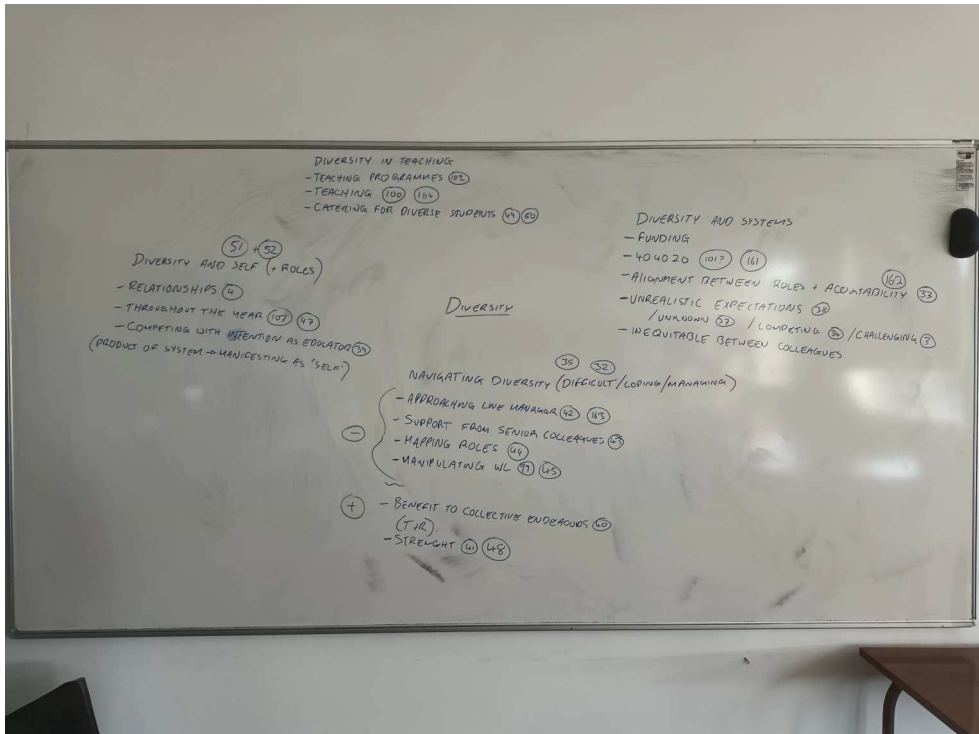 DIVERSITY IN TEACHING
- TEACHING PROGRAMMES 102
- TEACHING 100 164
- CATERING FOR DIVERSE STUDENTS 49 50
51 + 52
DIVERSITY AND SELF (+ ROLES)
- RELATIONSHIPS 4
- THROUGHOUT THE YEAR 103 47
- COMPETING WITH INTENTION AS EDUCATOR 39
(PRODUCT OF SYSTEM → MANIFESTING AS 'SELF')
DIVERSITY
DIVERSITY AND SYSTEMS
- FUNDING
- 404020 101? 161
162
- ALIGNMENT BETWEEN ROLES + ACCOUNTABILITY 33
- UNREALISTIC EXPECTATIONS 38
/UNKNOWN 37 / COMPETING 36 / CHALLENGING 3
- INEQUITABLE BETWEEN COLLEAGUES
35 32
NAVIGATING DIVERSITY (DIFFICULT/COPING/MANAGING)
- APPROACHING LINE MANAGER 42 163
- SUPPORT FROM SENIOR COLLEAGUES 43
- MAPPING ROLES 44
- MANIPULATING WL 99 45
-
+ - BENEFIT TO COLLECTIVE ENDEAVOURS 40
(T+R).
- STRENGHT 41 48